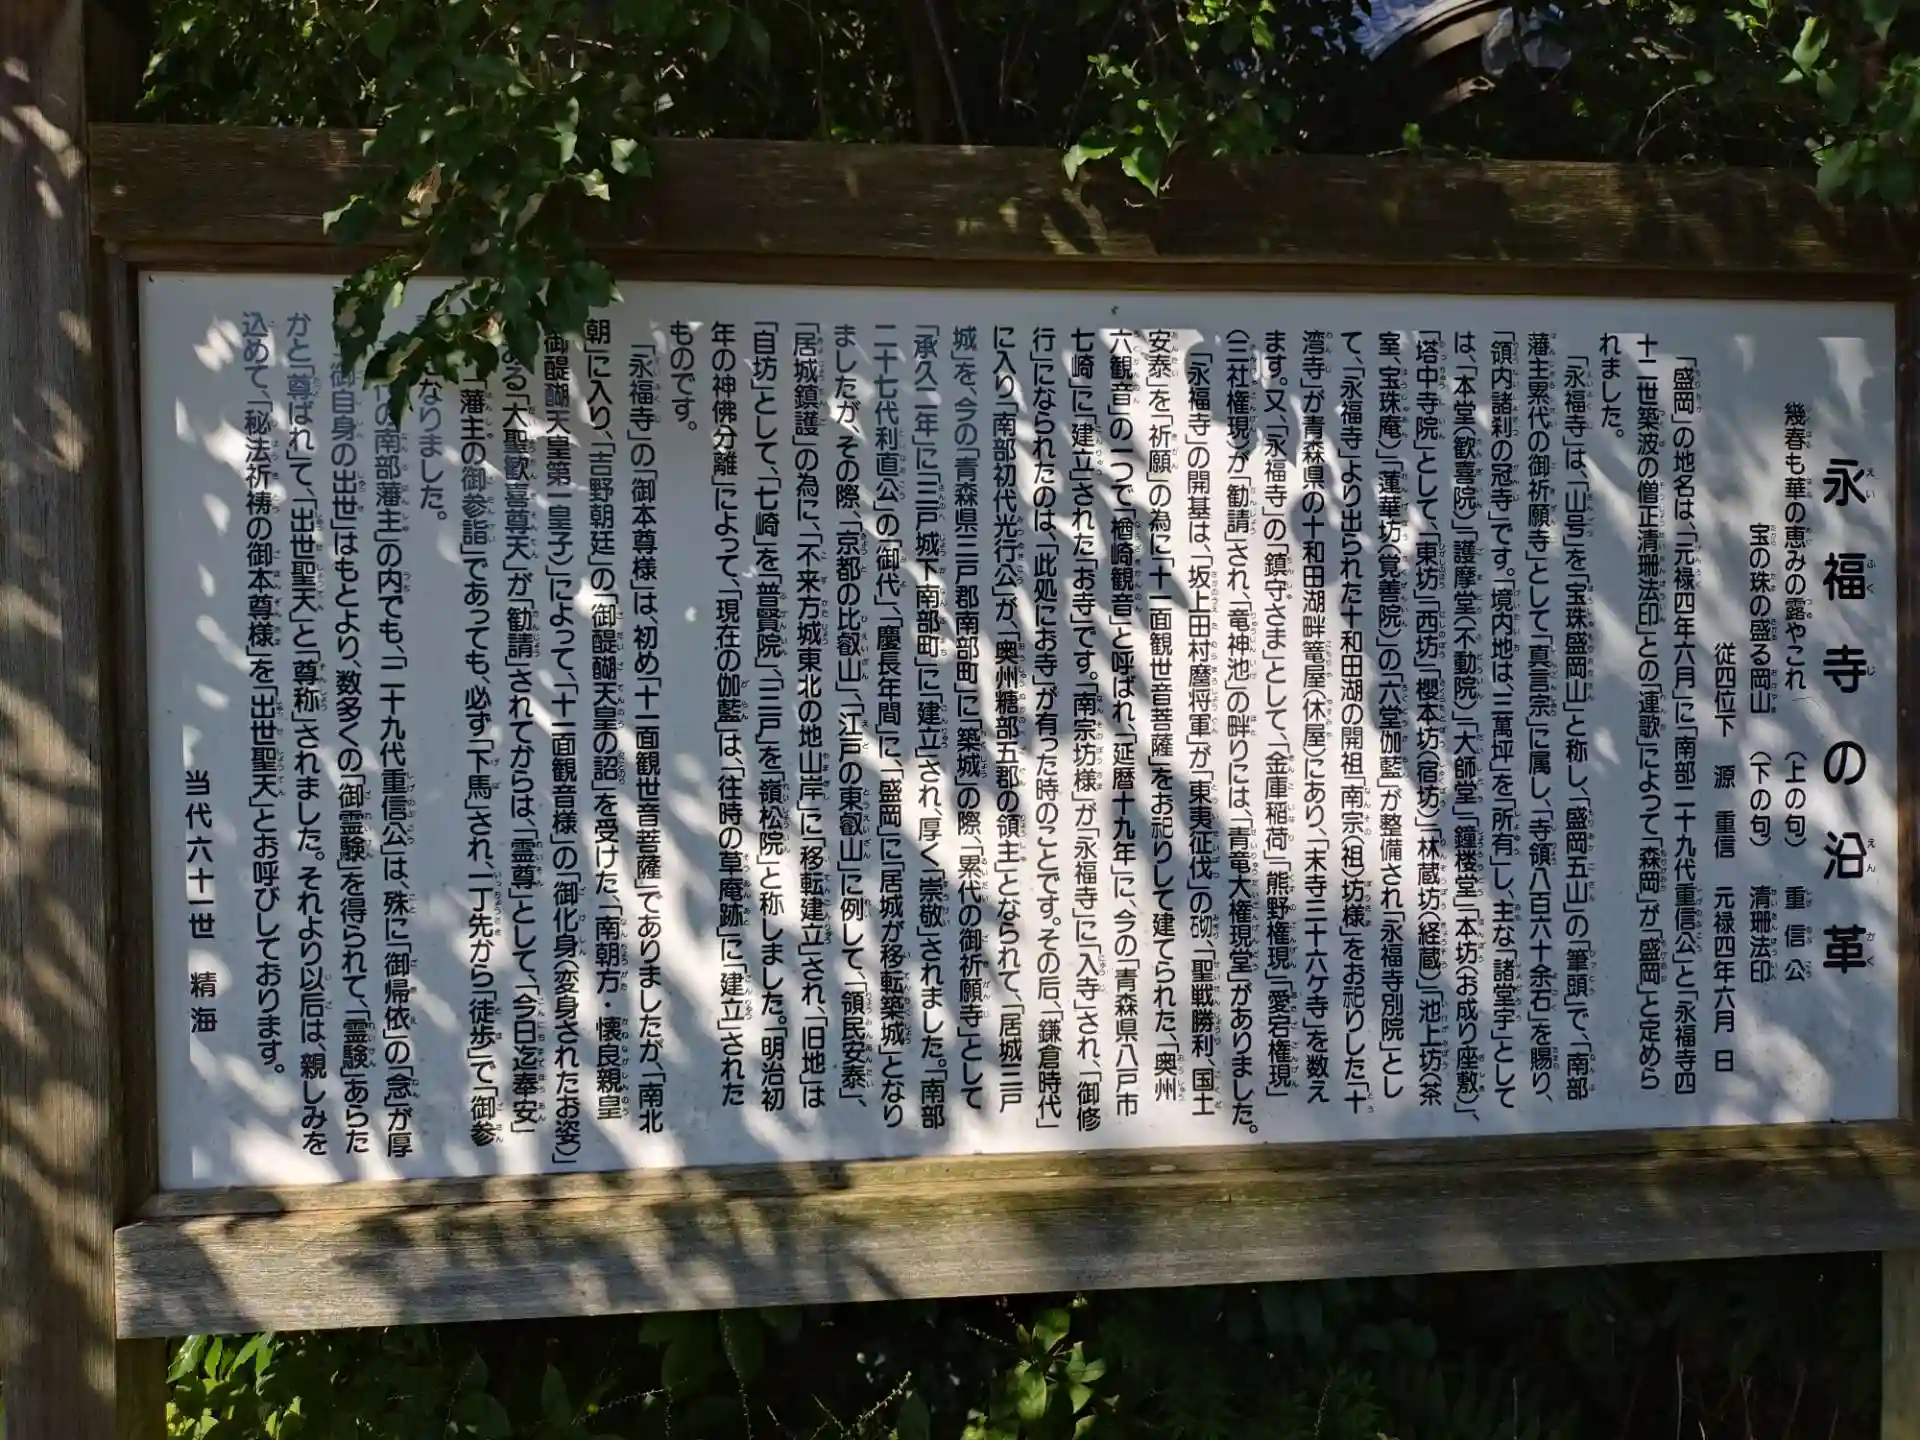 永福寺の沿革
幾春も華の恵みの露やこれ （上の句） 重信公
宝の珠の盛る岡山 （下の句） 清珊法印
従四位下 源 重信 元禄四年六月 日
「盛岡」の地名は、「元禄四年六月」に「南部二十九代重信公」と「永福寺四
十二世築波の僧正清珊法印」との「連歌」によって「森岡」が「盛岡」と定めら
れました。
「永福寺」は、「山号」を「宝珠盛岡山」と称し、「盛岡五山」の「筆頭」で、「南部
藩主累代の御祈願寺」として「真言宗」に属し、「寺領八百六十余石」を賜り、
「領内諸刹の冠寺」です。「境内地は、三萬坪」を「所有」し、主な「諸堂宇」として
は、「本堂（歓喜院）」「護摩堂（不動院）」「大師堂」「鐘楼堂」「本坊（お成り座敷）」、
「塔中寺院」として、「東坊」「西坊」「櫻本坊（宿坊）」「林蔵坊（経蔵）」「池上坊（茶
室、宝珠庵）」「蓮華坊（覚善院）」の「六堂伽藍」が整備され「永福寺別院」とし
て、「永福寺」より出られた十和田湖の開祖「南宗（祖）坊様」をお祀りした「十
湾寺」が青森県の十和田湖畔篭屋（休屋）にあり、「末寺三十六ケ寺」を数え
ます。又、「永福寺」の「鎮守さま」として、「金庫稲荷」「熊野権現」「愛宕権現」
（三社権現）が「勧請」され、「竜神池」の畔りには、「青竜大権現堂」がありました。
「永福寺」の開基は、「坂上田村麿将軍」が「東夷征伐」の砌、「聖戦勝利、国土
安泰」を「祈願」の為に「十一面観世音菩薩」をお祀りして建てられた、「奥州
六観音」の一つで「楢崎観音」と呼ばれ、「延暦十九年」に、今の「青森県八戸市
七崎」に「建立」された「お寺」です。「南宗坊様」が「永福寺」に「入寺」され、「御修
行」になられたのは、「此処にお寺」が有った時のことです。その后、「鎌倉時代」
に入り「南部初代光行公」が、「奥州糖部五郡の領主」となられて、「居城三戸
城」を、今の「青森県三戸郡南部町」に「築城」の際、「累代の御祈願寺」として
「承久二年」に「三戸城下南部町」に「建立」され、厚く「崇敬」されました。「南部
二十七代利直公」の「御代」、「慶長年間」に、「盛岡」に「居城が移転築城」となり
ましたが、その際、「京都の比叡山」、「江戸の東叡山」に例して、「領民安泰」、
「居城鎮護」の為に、「不来方城東北の地山岸」に「移転建立」され、「旧地」は
「自坊」として、「七崎」を「普賢院」、「三戸」を「嶺松院」と称しました。「明治初
年の神佛分離」によって、「現在の伽藍」は、「往時の草庵跡」に「建立」された
ものです。
「永福寺」の「御本尊様」は、初め「十一面観世音菩薩」でありましたが、「南北
朝」に入り、「吉野朝廷」の「御醍醐天皇の詔」を受けた、「南朝方・懐良親皇
御醍醐天皇第一皇子）」によって、「十一面観音様」の「御化身（変身されたお姿）」
ある「大聖歓喜尊天」が「勧請」されてからは、「霊尊」として、「今日迄奉安」
「藩主の御参詣」であっても、必ず「下馬」され、一丁先から「徒歩」で「御参
になりました。
代の南部藩主」の内でも、「二十九代重信公」は、殊に「御帰依」の「念」が厚
御自身の出世」はもとより、数多くの「御霊験」を得られて、「霊験」あらた
かと「尊ばれ」て、「出世聖天」と「尊称」されました。それより以后は、親しみを
込めて、「秘法祈祷の御本尊様」を「出世聖天」とお呼びしております。
当代六十一世 精海